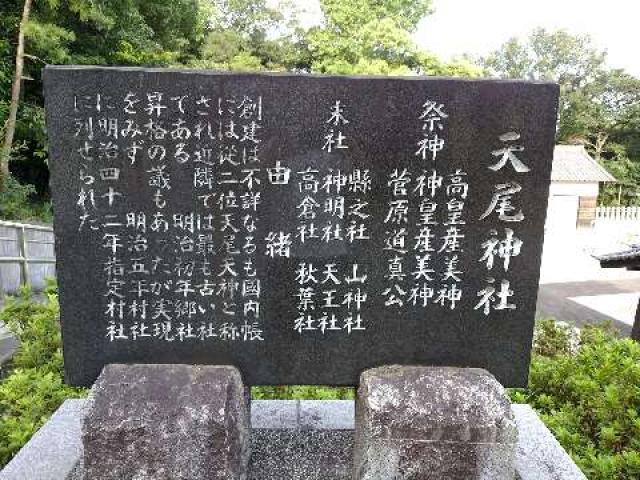 天尾神社
祭神 高皇産美神
神皇産美神
菅原道真公
末社 縣之社 山神社
神明社 天王社
高倉社 秋葉社
由緒
創建は不詳なるも國内帳
には従二位天尾天神と称
され近隣では最も古い社
である 明治初年郷社
昇格の議もあったが実現
をみず 明治五年村社
に明治四十二年指定村社
に列せられた